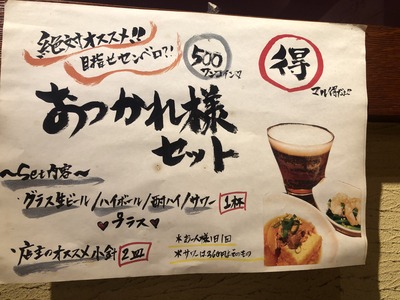 絶対オススメ!!
目指せセンベロ?!
500
ワンコインで
得
マル得だよ
おつかれ様
セット
~Set内容~
グラス生ビール/ハイボール/酎ハイ/サワー 1杯
♥プラス♥
・店主のオススメ小針 2皿
*お一人様1日1
*サワーは360円までのもの